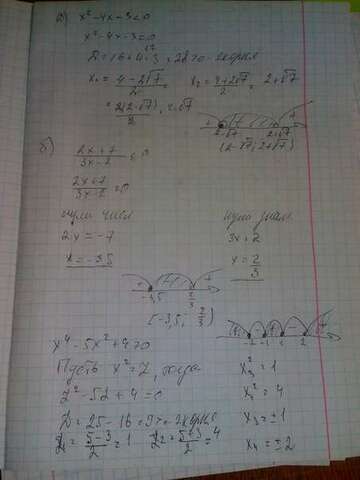 а) x² - 4x - 3 < 0
x² - 4x - 3 = 0
D = 16 + 4·3 = 28 > 0 - 2 корня
x₁ = (4 - 2√7)/2 x₂ = (4 + 2√7)/2 = 2 + √7
= 2(2 - √7)/2 = 2 - √7
2-√7 2+√7
(2-√7; 2+√7)
б) (2x + 7)/(3x - 2) ≤ 0
(2x + 7)/(3x - 2) = 0
нули числ нули знам
2x = -7 3x = 2
x = -3,5 x = 2/3
-3,5 2/3
[-3,5; 2/3)
-2 -1 1 2
x⁴ - 5x² + 4 > 0
Пусть x² = z, тогда
z² - 5z + 4 = 0
D = 25 - 16 = 9 > 0 - 2 корня
z₁ = (5 - 3)/2 = 1 z₂ = (5 + 3)/2 = 4
x² = 1
x² = 4
x₃ = ±1
x₄ = ±2